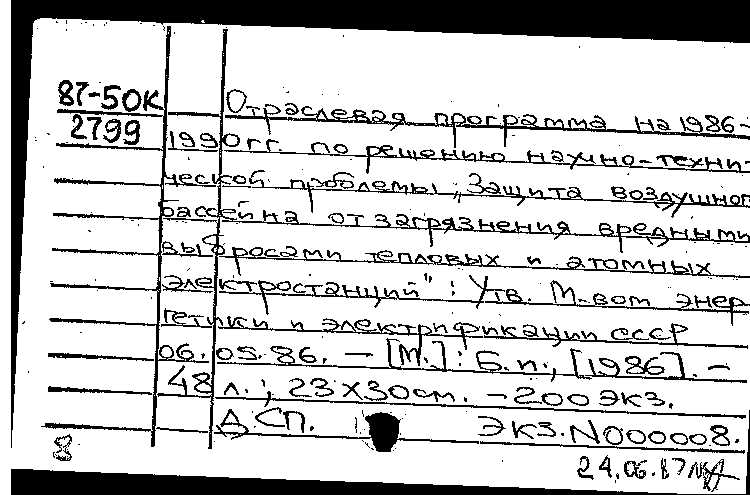 87-50К
2799
Отраслевая программа на 1986-
1990 гг. по решению научно-техни-
ческой проблемы „Защита воздушного
бассейна от загрязнения вредными
выбросами тепловых и атомных
электростанций": Утв. М-вом энер
гетики и электрификации СССР
06.05.86. – [М.]: Б.и., [1986]. –
48 л.; 23х30см. – 200 экз.
ДСП. Экз.N000008.
8
24.06.87